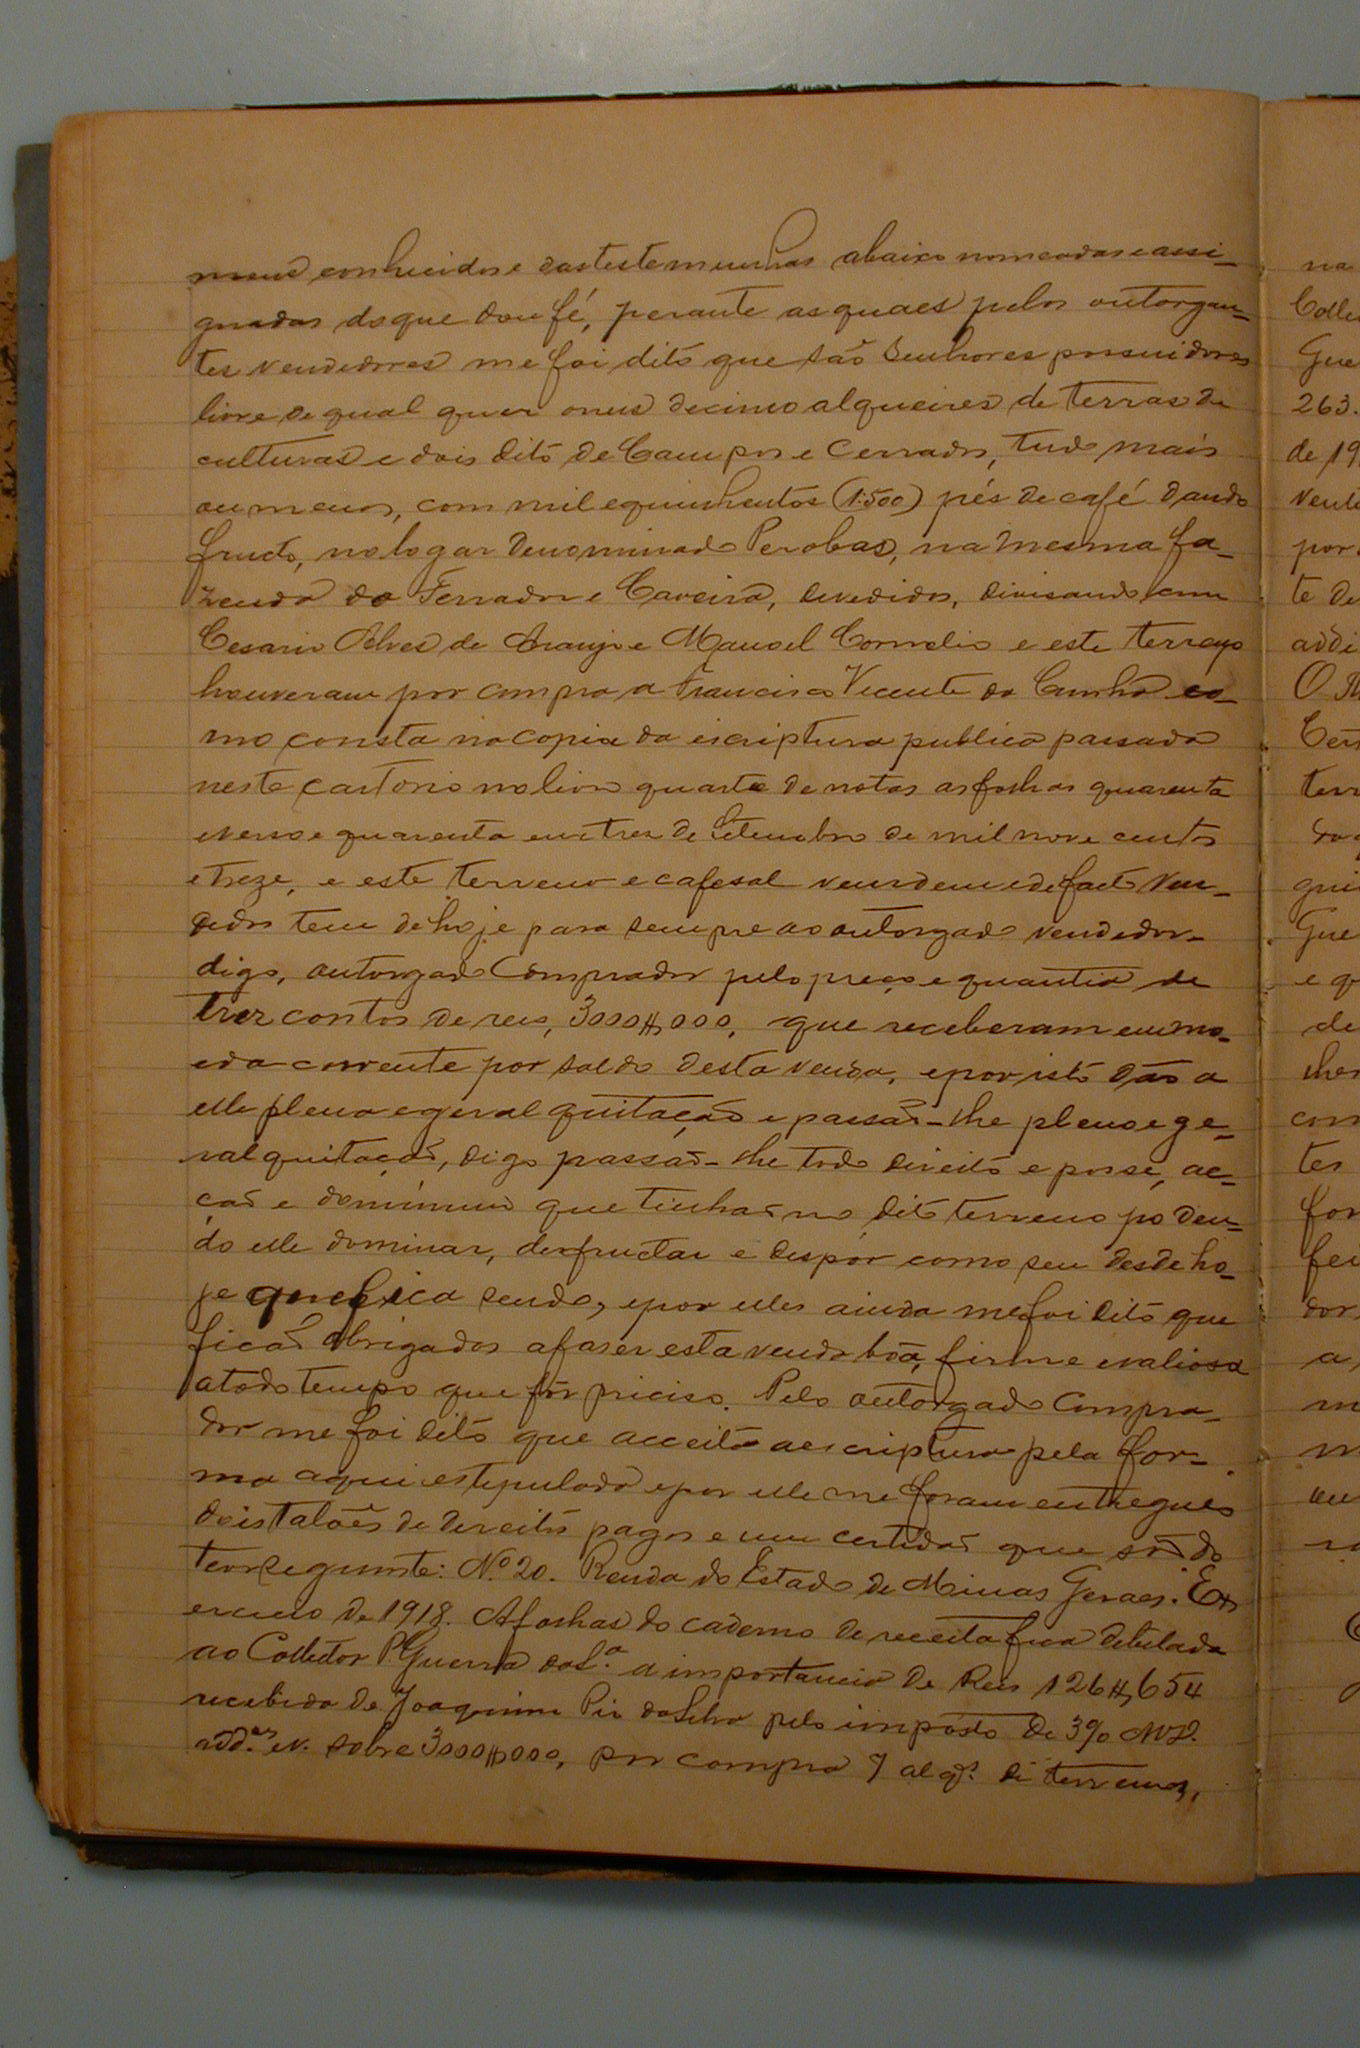 meus conhecidos e das testemunhas abaixo nomeadas e assi-
gnadas do que dou fé, perante as quaes pelos outorgan-
tes vendedores me foi dito que são Senhores possuidores
livre de qual quer onus de cinco alqueires de terras de
culturas e dois dito de Campos e Cerrados, tudo mais
ou menos, com mil e quinhentos (1:500) pés de café dando
fructo, no logar denominado Perobas, na mesma fa-
zenda do Ferrador e Caveira, devedidos, divisando com
Cesario Alves de Araujo e Manoel Cornelio e este terreno
houveram por compra a Francisco Vicente da Cunha co-
mo consta na copia da escriptura publica passada
neste cartorio no livro quarto de notas as folhas quarenta
e verso e quarenta em tres de Setembro de mil nove centos
e treze, e este terreno e cafesal vendem e de facto ven-
dido tem de hoje para sempre ao outorgado vendedor-
digo, outorgado Comprador pelo preço e quantia de
trez contos de reis, 3000$000, que receberam em mo-
eda corrente por saldo desta venda, e por isto dão a
elle plena e geral quitação e passão-lhe pleno e ge-
ral quitação, digo passão-lhe todo direito e posse, ac-
ção e dominium que tinhão no dito terreno poden-
do elle dominar, desfructar e dispór como seu desde ho-
je que fica sendo, e por elles ainda me foi dito que
ficão obrigados a faser esta venda bôa, firme e valiosa
a todo tempo que fôr preciso. Pelo outorgado Compra-
dor me foi dito que acceita a escriptura pela for-
ma aqui estipulada e por elle me foram entregues
dois talões de direitos pagos e um certidão que são do
teor seguinte: Nº 20. Renda do Estado de Minas Geraes. Ex
ercicio de 1918. A folhas do caderno de receita fica debitada
ao Colletor P. Guerra da Sª a importancia de Reis 126$654
recebida de Joaquim Pio da Silva pelo impósto de 3% N. D.
add.es e N. sobre 3000$000, por compra 7 alqs. di terrenos,
na
Colle
Gue
263.
de 19
por
te de
addi
O
terr
Gue
e q
de
com
tes
for
dor
a,
m